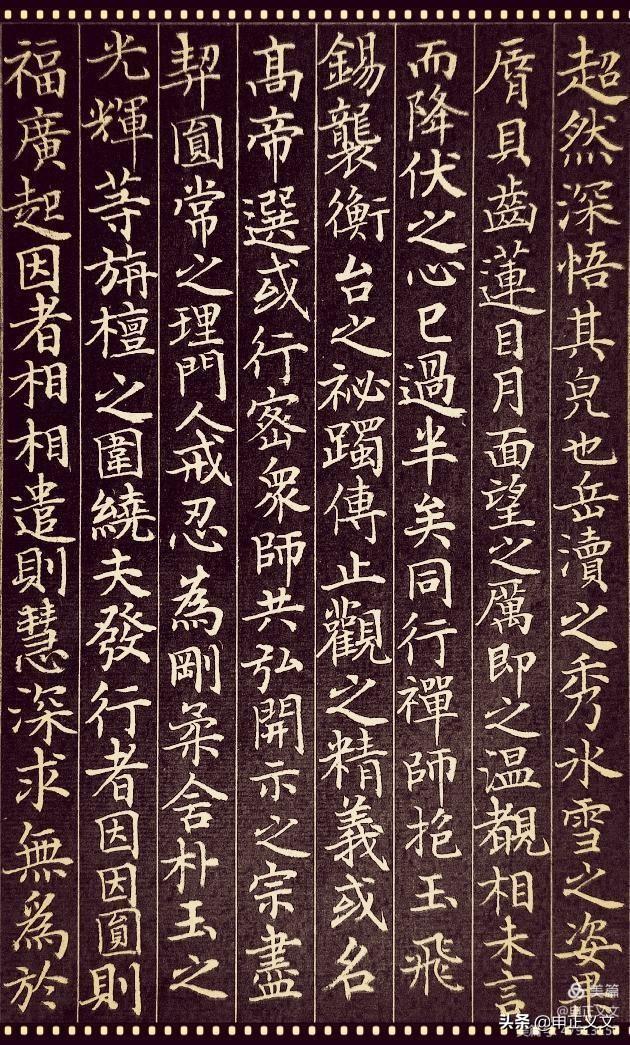 超然深悟其皃也岳瀆之秀冰雪之姿果
脣貝齒蓮目月面望之厲即之温覩相未言
而降伏之心已過半矣同行禪師抱玉飛
錫襲衡台之祕躅傳止觀之精義或名
高帝選或行密衆師共弘開示之宗盡
契圓常之理門人戒忍為剛柔舍朴玉之
光輝等旃檀之圍繞夫發行者因因圓則
福廣起因者相相遣則慧深求無爲於
美篇
@申正义文
头条 @申正义文